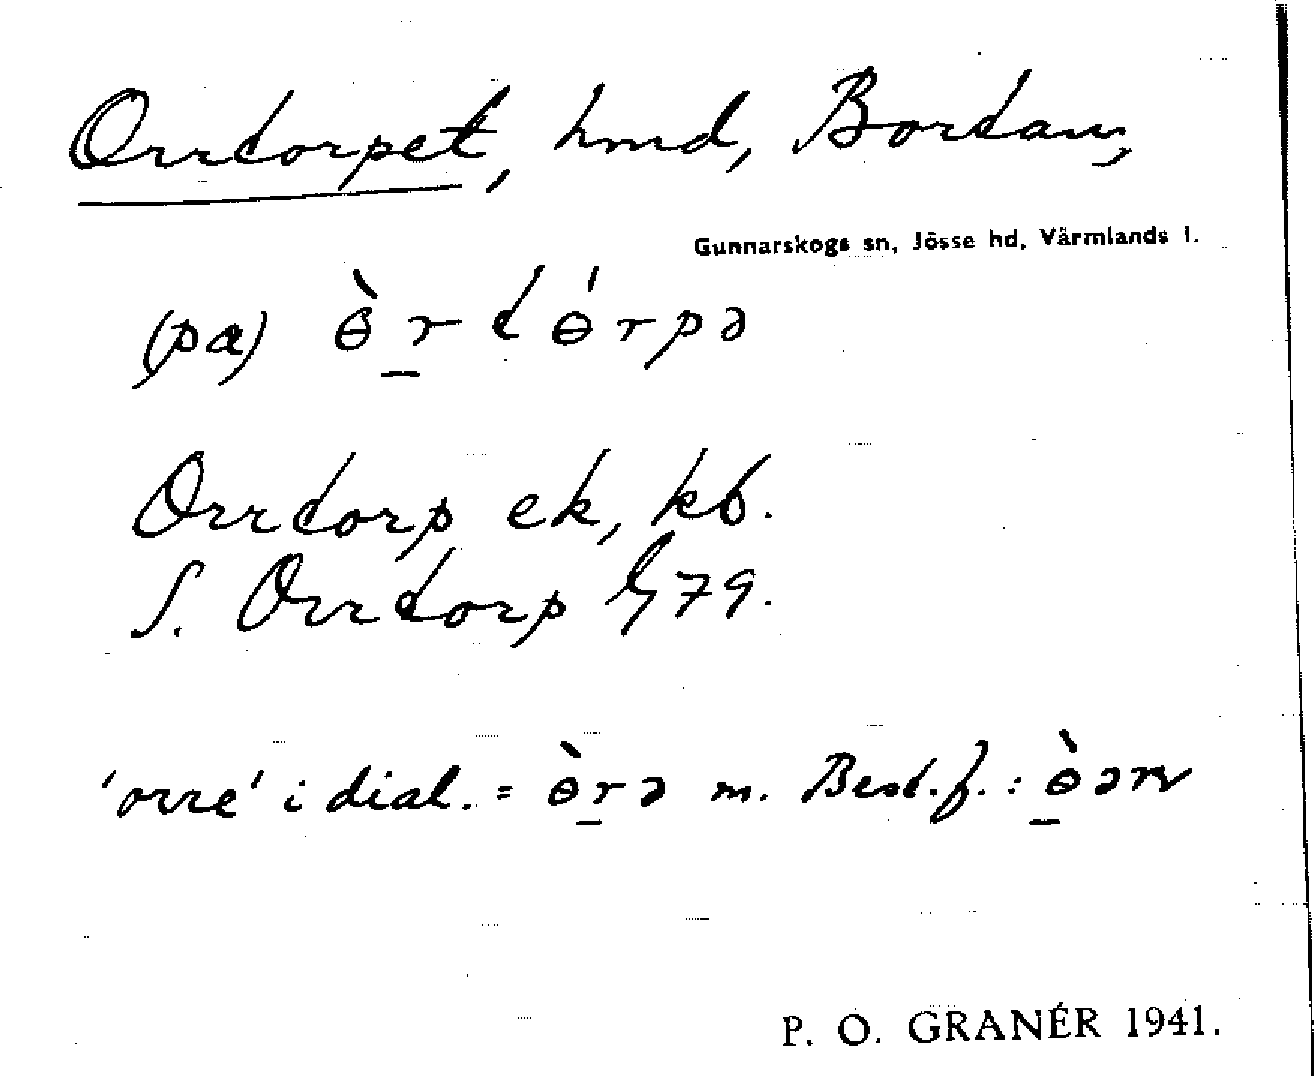 Orrtorpet, hmd, Bortan,
Gunnarskogs sn, Jösse hd, Värmlands l.
(pa) ɵ̀r̲tɵ́rpə
Orrtorp ek, kb.
S. Orrtorp G79.
'orre' i dial. = ɵ̀r̲ə m. Best. f. :
P. O. GRANÉR 1941.